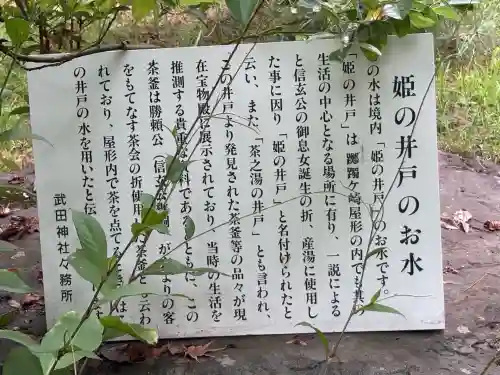 姫の井戸のお水
の水は境内「姫の井戸」のお水です。
「姫の井戸」は躑躅ケ崎屋形の内でも其
生活の中心となる場所に有り、一説による
と信玄公の御息女誕生の折、産湯に使用し
た事に因り「姫の井戸」と名付けられたと
云い、また「茶之湯の井戸」とも言われ、
この井戸より発見された茶釜等の品々が現
在宝物殿に展示されており、当時の生活を
推測する貴重な資料である。ともに、この
茶釜は勝頼公(信 公よりの客
をもてなす茶会の折使用した茶釜 云わ
れており、屋形内で茶を点てる
の井戸の水を用いたと伝
武田神社々務所